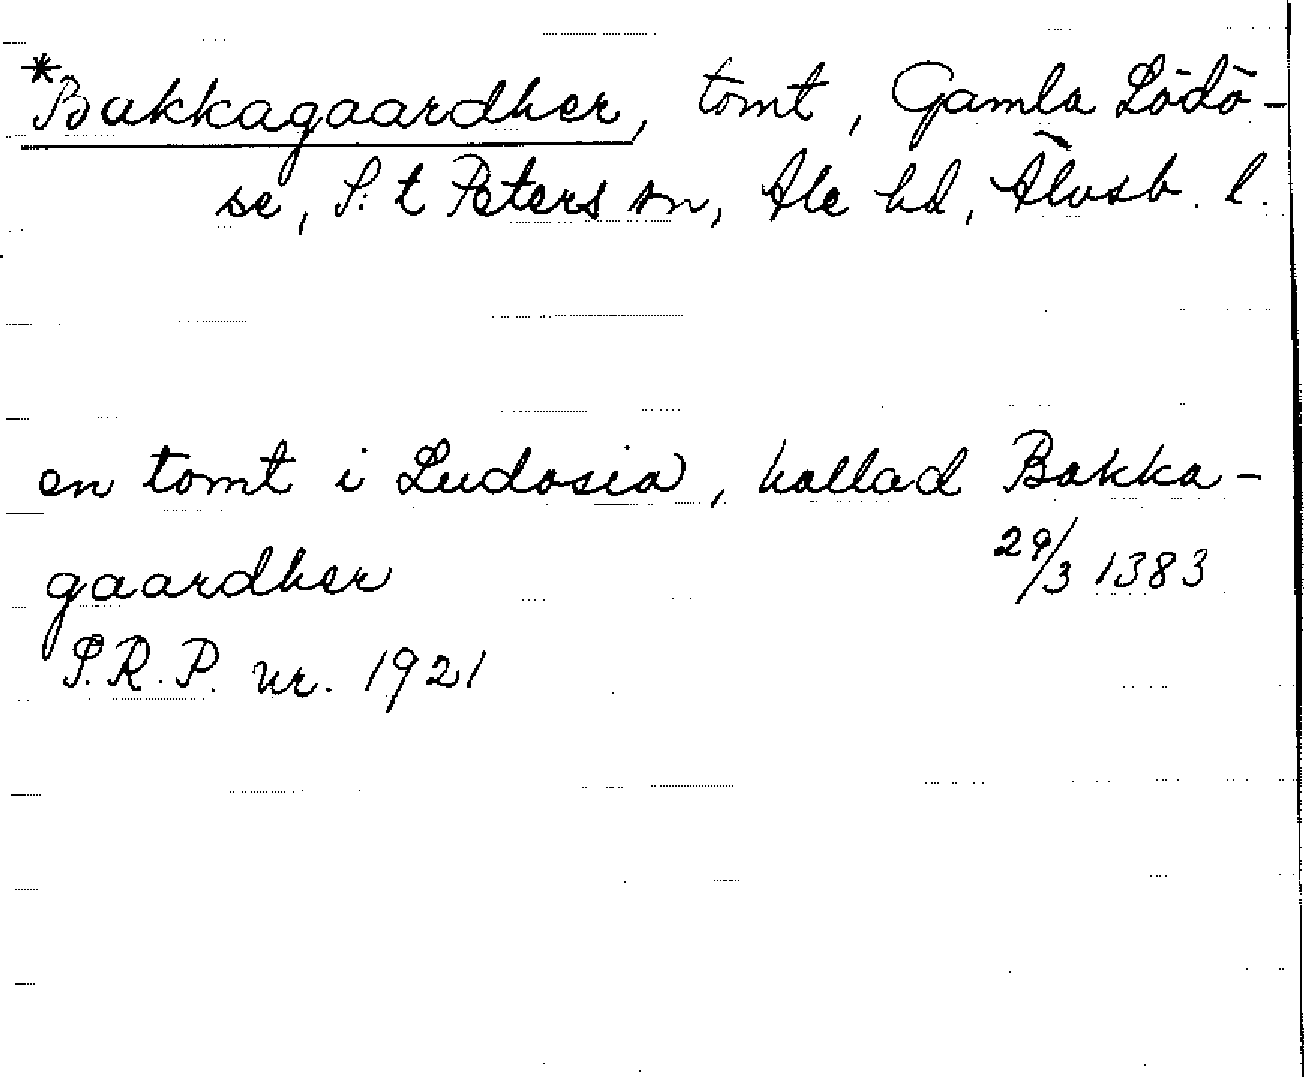 *Bakkagaardher, tomt, Gamla Lödö-
se, S:t Peters sn, Ale hd, Älvsb. l.
en tomt i Ludosia, kallad Bakka-
gaardher 29/3 1383
S.R.P. nr. 1921